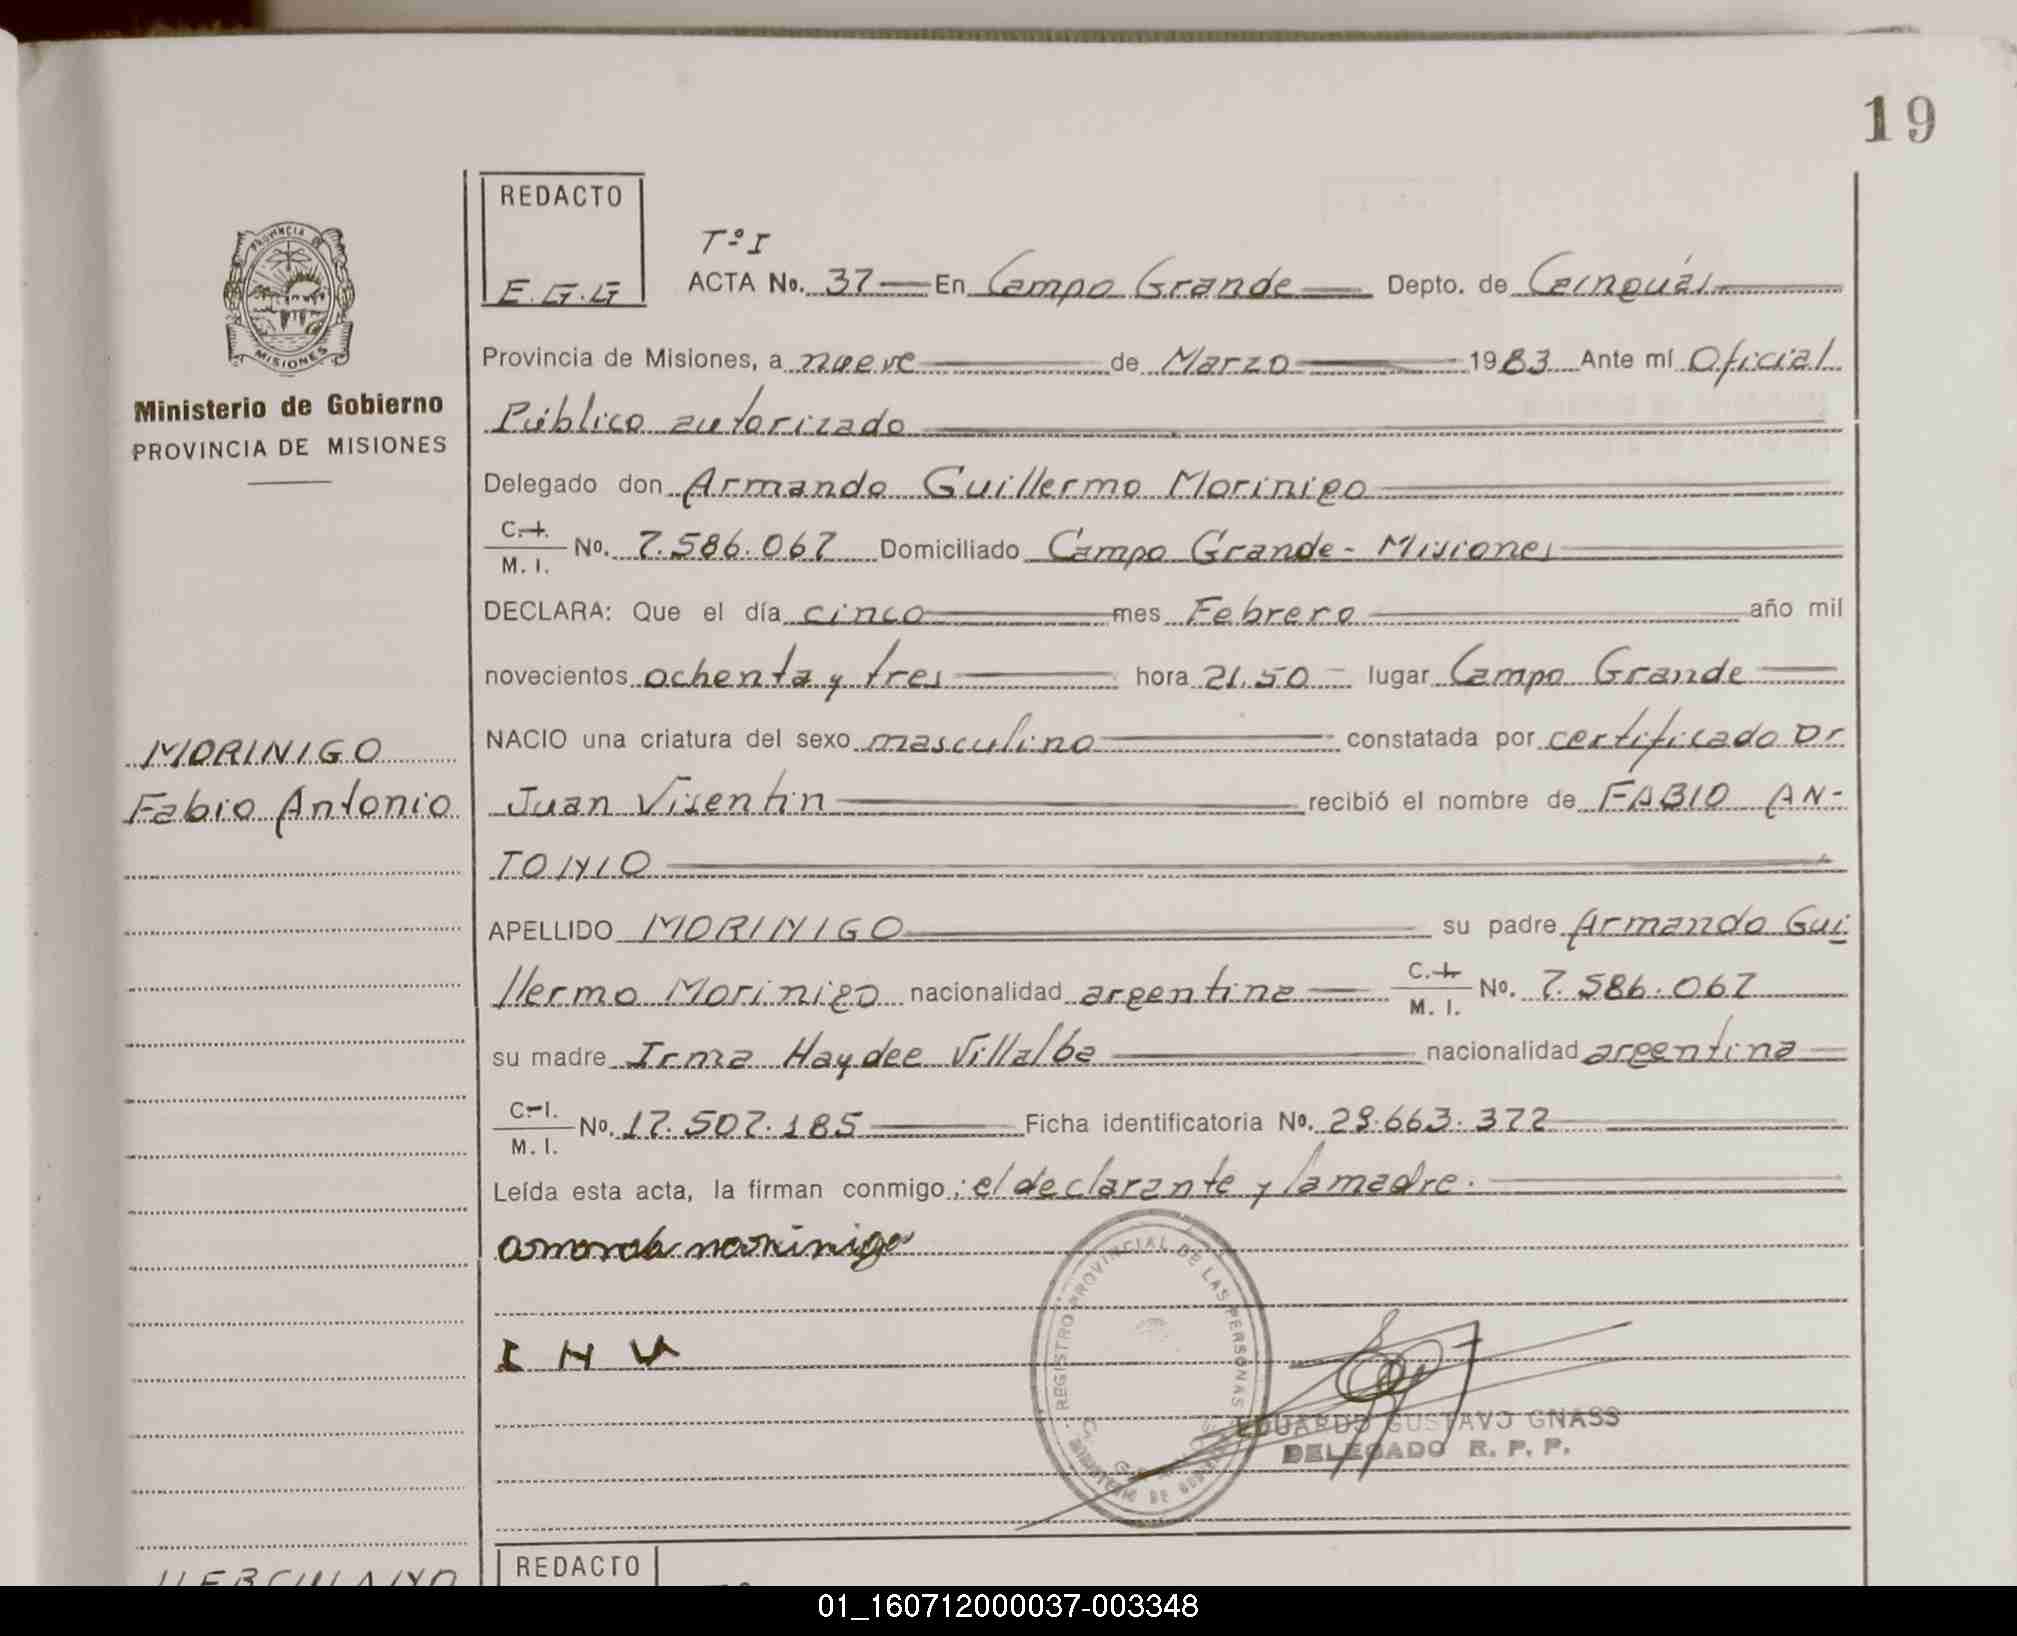 19
REDACTO
E.G.G
PROVINCIA DE
MISIONES
Ministerio de Gobierno
PROVINCIA DE MISIONES
Tº I
ACTA No. 37 En Campo Grande Depto. de Cainguás
Provincia de Misiones, a nueve de Marzo 1983 Ante mí Oficial
Público autorizado
Delegado don Armando Guillermo Morinigo
C. I. M. I. No. 7.586.067 Domiciliado Campo Grande - Misiones
DECLARA: Que el día cinco mes Febrero año mil
novecientos ochenta y tres hora 21.50 lugar Campo Grande
MORINIGO
Fabio Antonio
NACIO una criatura del sexo masculino constatada por certificado Dr
Juan Visentin recibió el nombre de FABIO AN-
TONIO
APELLIDO MORINIGO su padre Armando Gui
llermo Morinigo nacionalidad argentina C. I. M. I. No. 7.586.067
su madre Irma Haydee Villalba nacionalidad argentina
C. I. M. I. No. 17.507.185 Ficha identificatoria No. 29.663.372
Leída esta acta, la firman conmigo: el declarante y la madre.
I H V
REGISTRO PROVINCIAL DE LAS PERSONAS
EDUARDO GUSTAVO GNASS
DELEGADO R. P. P.
REDACTO
01_160712000037-003348